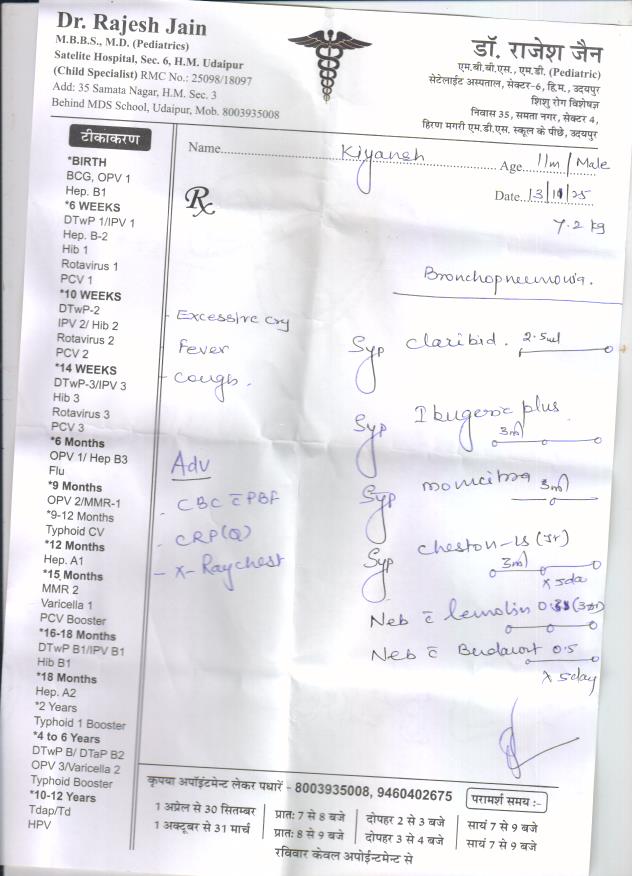 Dr. Rajesh Jain
M.B.B.S., M.D. (Pediatrics)
Satelite Hospital, Sec. 6, H.M. Udaipur
(Child Specialist) RMC No.: 25098/18097
Add: 35 Samata Nagar, H.M. Sec. 3
Behind MDS School, Udaipur, Mob. 8003935008
डॉ. राजेश जैन
एम.बी.बी.एस., एम.डी. (Pediatric)
सेटेलाईट अस्पताल, सेक्टर-6, हि.म., उदयपुर
शिशु रोग विशेषज्ञ
निवास 35, समता नगर, सेक्टर 4,
हिरण मगरी एम.डी.एस. स्कूल के पीछे, उदयपुर
टीकाकरण
*BIRTH
BCG, OPV 1
Hep. B1
*6 WEEKS
DTwP 1/IPV 1
Hep. B-2
Hib 1
Rotavirus 1
PCV 1
*10 WEEKS
DTwP-2
IPV 2/ Hib 2
Rotavirus 2
PCV 2
*14 WEEKS
DTwP-3/IPV 3
Hib 3
Rotavirus 3
PCV 3
*6 Months
OPV 1/ Hep B3
Flu
*9 Months
OPV 2/MMR-1
*9-12 Months
Typhoid CV
*12 Months
Hep. A1
*15 Months
MMR 2
Varicella 1
PCV Booster
*16-18 Months
DTwP B1/IPV B1
Hib B1
*18 Months
Hep. A2
*2 Years
Typhoid 1 Booster
*4 to 6 Years
DTwP B/ DTaP B2
OPV 3/Varicella 2
Typhoid Booster
*10-12 Years
Tdap/Td
HPV
Name Kiyansh Age 11m/Male
Rx
Date 13/11/25
7.2 kg
Bronchopneumonia.
- Excessive cry
- Fever
- Cough.
Adv
- CBC c̄ PBF
- CRP(Q)
- X-Ray chest
Syp claribid. 2.5ml
Syp Ibugesic plus 3ml
Syp 3ml
Syp cheston-LS (Jr) 3ml
x 5da
Neb c̄
Neb c̄ 0.5
x 5day
कृपया अपॉइंटमेन्ट लेकर पधारें - 8003935008, 9460402675 परामर्श समय :-
1 अप्रेल से 30 सितम्बर प्रातः 7 से 8 बजे दोपहर 2 से 3 बजे सायं 7 से 9 बजे
1 अक्टूबर से 31 मार्च प्रातः 8 से 9 बजे दोपहर 3 से 4 बजे सायं 7 से 9 बजे
रविवार केवल अपोईन्टमेन्ट से